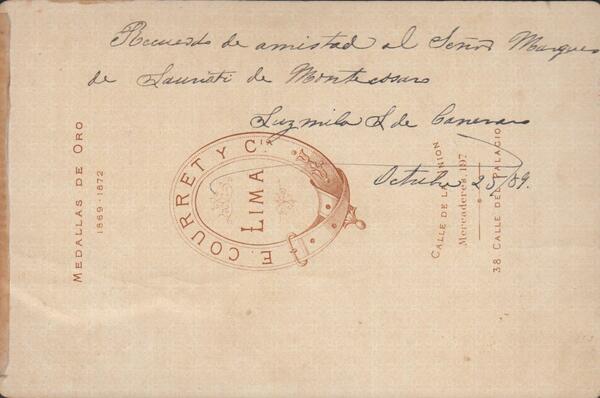 Recuerdo de amistad al Señor Marques
de Lauriati de Montecosaro
Luzmila L de
Octubre 25/89.
MEDALLAS DE ORO
1869-1872
E. COURRET Y Cia
LIMA
CALLE DE LA UNION
Mercaderes, 197
38 CALLE DEL PALACIO